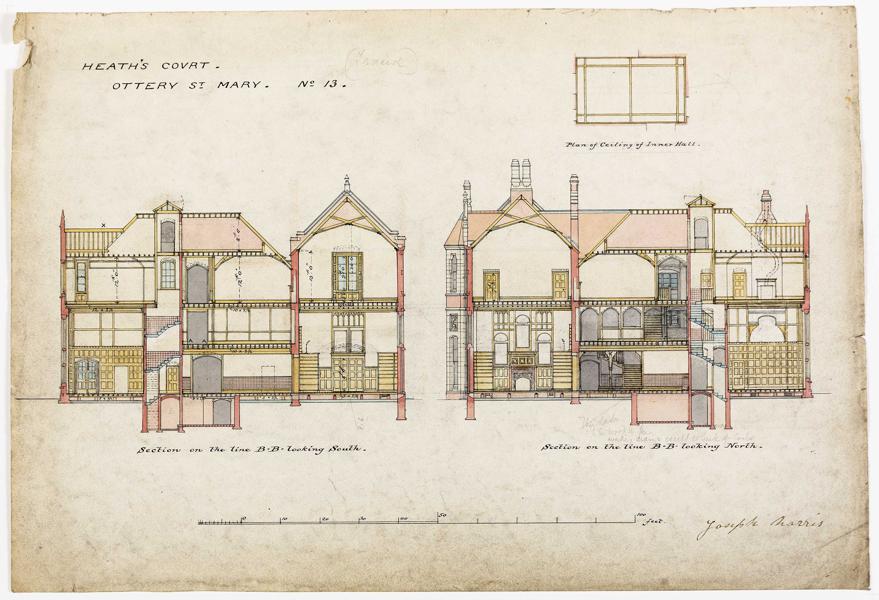 HEATH'S COVRT.
OTTERY ST MARY. No 13.
(Traced)
Plan of Ceiling of Inner Hall.
Section on the line B-B- looking South.
Section on the line B-B- looking North.
0 10 20 30 40 50 100 feet.
Joseph Morris